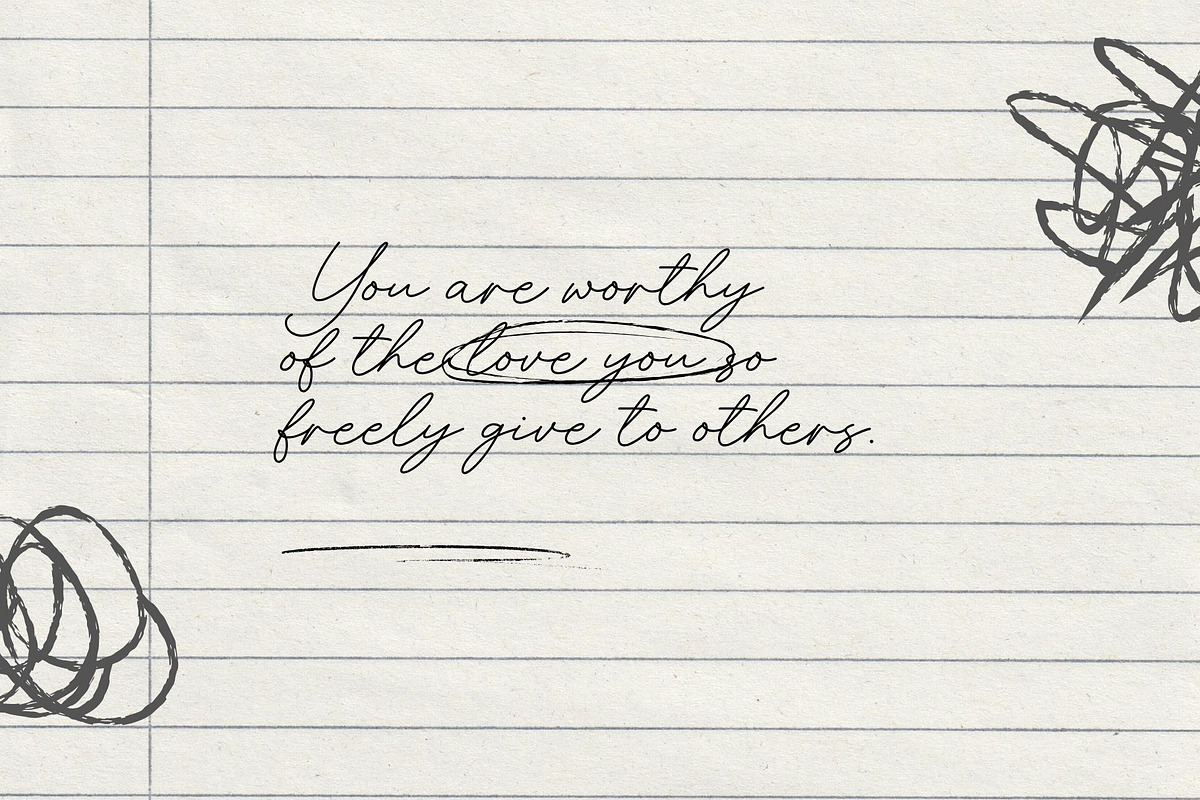 You are worthy
of the love you so
freely give to others.